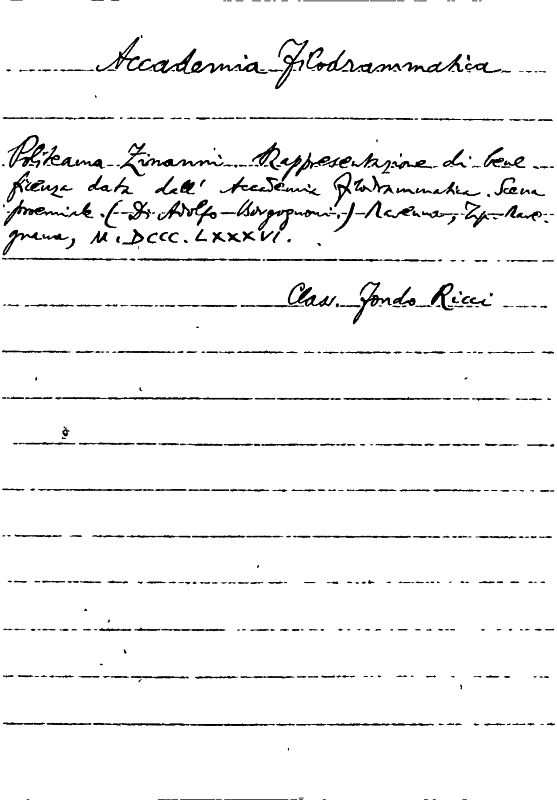 Accademia Filodrammatica
Politeama Zinanni. Rappresentazione di bene
ficenza data dall' Accademia Filodrammatica. Scena
proemiale. (Di Adolfo Borgognoni.) Ravenna, Tip. Rave-
gnana, M.DCCC.LXXXVI.
Class. Fondo Ricci